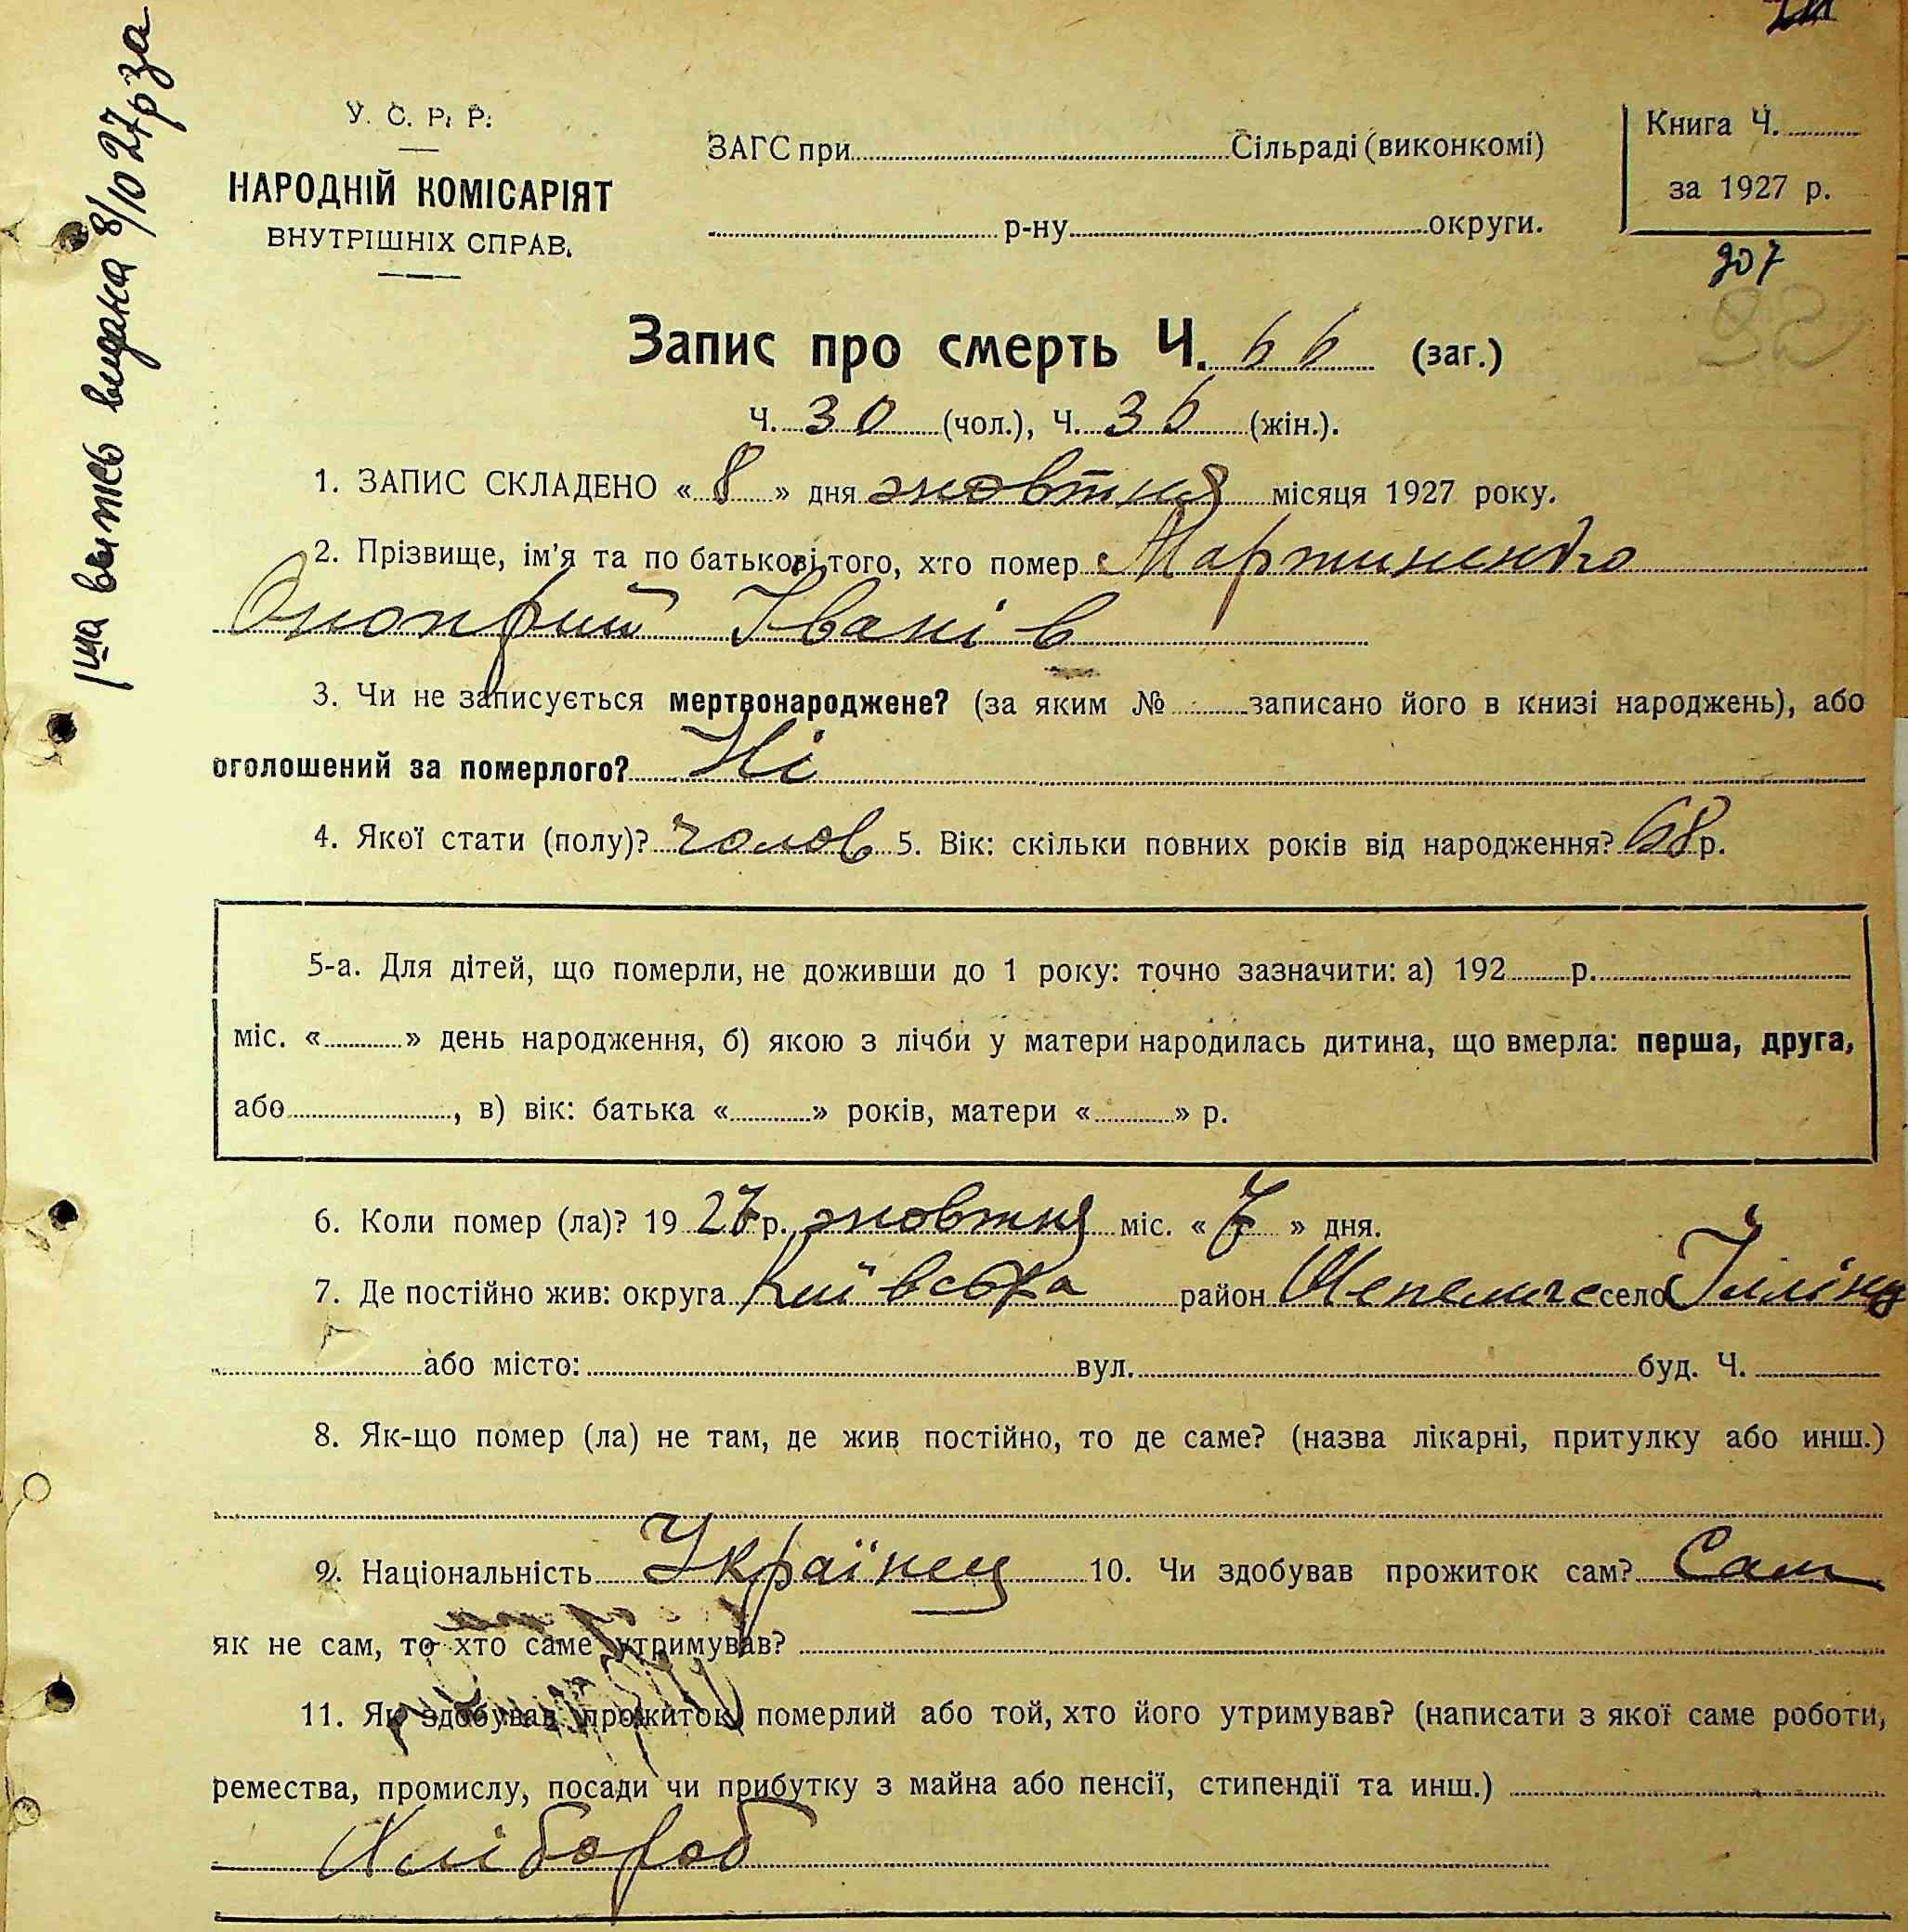 У. С. Р. Р.
НАРОДНІЙ КОМІСАРІЯТ
ВНУТРІШНІХ СПРАВ.
ЗАГС при Сільраді (виконкомі)
р-ну округи.
Книга Ч.
за 1927 р.
207
92
витяс видана 8/10 27р за
Запис про смерть Ч. 66 (заг.)
Ч. 30 (чол.), Ч. 36 (жін.).
1. ЗАПИС СКЛАДЕНО « 8 » дня жовтня місяця 1927 року.
2. Прізвище, ім'я та по батькові того, хто помер Мартиненко
Онопрій Іванів
3. Чи не записується мертвонароджене? (за яким № записано його в книзі народжень), або
оголошений за померлого? Ні
4. Якої стати (полу)? чолов 5. Вік: скільки повних років від народження? 68 р.
5-а. Для дітей, що померли, не доживши до 1 року: точно зазначити: а) 192 р.
міс. « » день народження, б) якою з лічби у матери народилась дитина, що вмерла: перша, друга,
або , в) вік: батька « » років, матери « » р.
6. Коли помер (ла)? 19 27 р. жовтня міс. « 7 » дня.
7. Де постійно жив: округа Київська район Шепеличе село Іллінц
або місто: вул. буд. Ч.
8. Як-що помер (ла) не там, де жив постійно, то де саме? (назва лікарні, притулку або инш.)
9. Національність Українец 10. Чи здобував прожиток сам? Сам
як не сам, то хто саме утримував?
11. Як здобував прожиток померлий або той, хто його утримував? (написати з якої саме роботи,
ремества, промислу, посади чи прибутку з майна або пенсії, стипендії та инш.)
Хлібороб